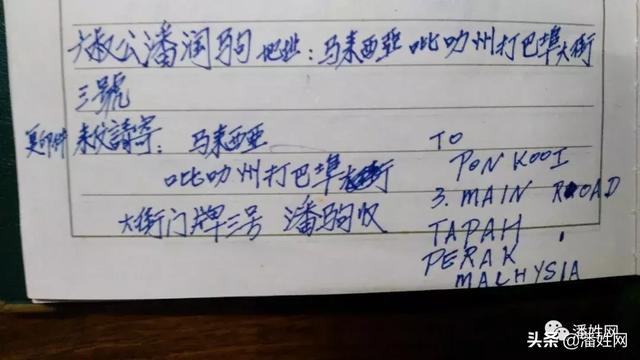 六叔公潘润驹地址：马来西亚吡叻州打巴埠大街
三號
复印件 来文請寄：马来西亚
吡叻州打巴埠
大街门牌三号 潘驹收
TO
PON KOOI
3. MAIN ROAD
TAPAH
PERAK
MALHYSIA
潘姓网
头条@潘姓网